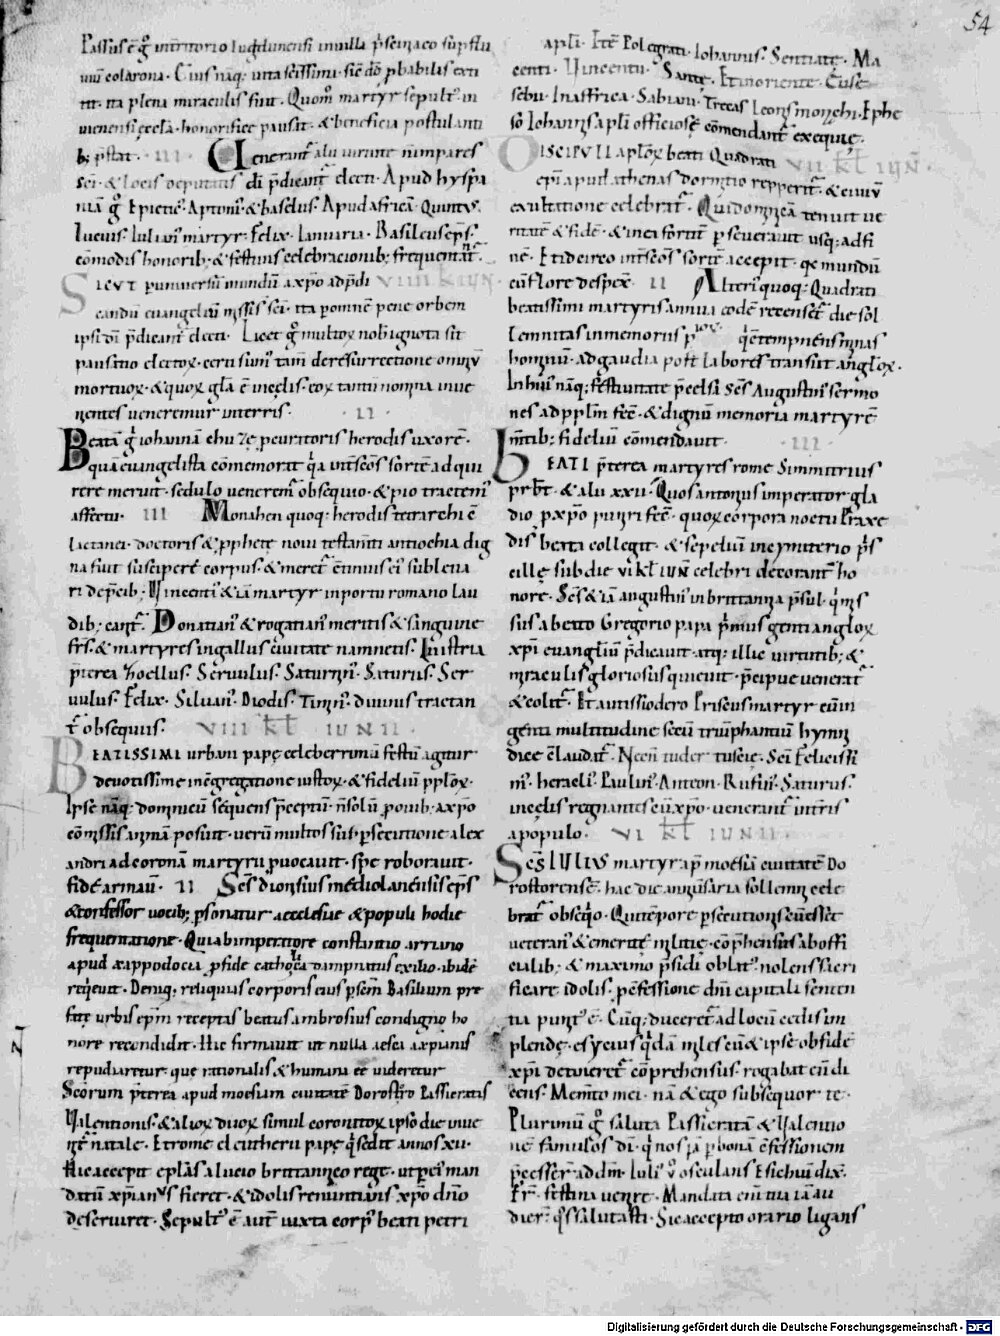 54
Passus ē g̊ in territorio lugdunensi in uilla
uiuū colarona. Cuius nāq; uita
tit. ita plena miraculis fuit. Quom̄ martyr sepult' in
uienensi ęccła. honorifice pausat. & beneficia postulanti
b; p̄stat. III. Uenerant̄ alii uirtute n̄ impares
sc̄i. & locis deputatis dī p̄dicant̄ electi. Apud hyspa
niā g̊ Epictet'. Aptoni'. & baselus. Apud affricā. Quintus.
Lucius. Iulian' martyr. Felix. Ianuaria. Basileus ep̄s.
cōmodis honorib; & festiuis celebracionib; frequentāt̄.
SICUT p uniuersū mundū a xp̄o ad p̄di VIIII kł IUN̄.
candū euangeliū missis sc̄i. ita p omnē pene orbem
ipsi dī p̄dicant̄ electi. Licet g̊ multoꝝ nob̄ ignota sit
pausatio electoꝝ. certi sum' tam̄ de resurrectione omniū
mortuoꝝ. & quoꝝ glā ē in cęlis. eoꝝ tantū nomina inue
nientes ueneremur in terris. II
Beatā g̊ iohannā chuzę pcuratoris herodis uxorē.
quā euangelista cōmemorat q̄a int̄ sc̄os sortē adqui
rere meruit. sedulo uenerem̄ obsequio. & pio tractem'
affectu. III Monahen quoq; herodis tetrarchę
lactanei. doctoris & pphetę noui testam̄ti antiochia dig
na fuit suscipere corpus. & meret̄ ei' sub
ri Uincenti' & iā martyr in portu romano lau
dib; cant̄. Donatian' & rogatian' meritis & sanguine
frs̄. & martyres in gallus ciuitate namnetis. In istria
p̄terea Zoellus. Seruulus. Saturnin'. Saturus. Ser
uulus. Felix. Siluan'. Diodis. Timin'. diuinis tractan
t̄ obsequiis. VIII kł IUNII.
BEATISSIMI urbani papę celeberrimū festū agitur
deuotissime in cōgregatione iustoꝝ. & fidelium pploꝝ.
Ipse nāq; dominicū sequens p̄ceptū. n̄ solū p ouib; a xp̄o
cōmissis animā posuit. uerū multos suis psecutione alex
andri ad coronā martyrii puocauit. spe roborauit.
fide armauit. II Sc̄s dionisius mediolanensis ep̄s
& confessor uocib; psonatur ęcclesię & populi hodie
frequentatione. Quia ab imperatore constantio arriano
apud cappodociā p fide catholica dampnatus exilio. ibidē
req̄euit. Deniq; reliquias corporis eius p sc̄m Basilium pre
fate urbis ep̄m receptas beatus ambrosius condigno ho
nore recondidit. Hic firmauit ut nulla aesca a xpianis
repudiaretur. que rationalis & humana eē uideretur
Scorum p̄terea apud moesium ciuitatē Dorostoro Passicratis
Ualentionis. & alioꝝ duoꝝ simul coronatoꝝ ipso die inue
nit̄ natale. Et rome eleutherii papę q̄ sedit annos xv.
Hic accepit epłas a lucio brittannico rege. ut p ei' man
datū xpian's fieret. & idolis renuntians xp̄o dn̄o
deseruiret. Sepult' ē aut̄ iuxta corp' beati petri
apłi. Itē Polegrati. Iohannis. Sentiatę. Ma
centi. Uincenti. Santę. Et in oriente. Euse
sebii. In affrica. Sabiani. Trecas. Leonis monchi. Ephe
so Iohannis apłi officiosę cōmendant̄ exequię.
DISCIPULI apłoꝝ beati Quadrati VII kł IUN̄.
ep̄i apud athenas dormitio repperit̄. & ei' cū
exultatione celebrat̄. Qui dominicā tenuit ue
ritatē & fidē. & in ea fortit̄ pseuerauit usq; ad fi
nē. Et ideireo int̄ sc̄os sortē accepit. q̄a mundū
cū flore despexit. II Alteri' quoq; Quadrati
beatissimi martyris annua eodē recenset̄ die sol
lemnitas in memoriis qui contempnens minas
hominū. ad gaudia post labores transiit angloꝝ.
In hui' nāq; festiuitate p̄celsa Sc̄s Augustin' sermo
nes ad pplm̄ fec̄. & dignū memoria martyrē
m̄tib; fideliū cōmendauit. III
BEATI p̄terea martyres romę Simmitrius
pr̄bt̄. & alii xxii. Quos antonius imperator gla
dio p xp̄o puniri fec̄. quoꝝ corpora noctu Praxe
dis beata collegit. & sepeliuit in cymiterio pris
cille. sub die VII kł IUN̄ celebri decorant̄ ho
nore. Sc̄s & iā augustin' in brittannia p̄sul. q̄ mis
sus a beato Gregorio papa p̄mus genti angloꝝ
xp̄i euangliū p̄dicauit. atq; illic uirtutib; &
miraculis gloriosus quieuit. p̄cipue uenerat̄
& colit̄. Et autissiodero Priscus martyr cū in
genti multitudine sociū triumphantiū hymni
dice claudat̄. Necnō tuder tuscię. Sc̄i Felicissi
mi. heracli'. Paulin'. Anteon. Rufin'. Saturus.
in cęlis regnantes cū xp̄o. uenerant̄ in t̄ris
a populo. VI kł IUNII.
Sc̄s IULIUS martyr ap̄ moesiā ciuitatē Do
rostorensē. hac die anniuersaria sollemni cele
brat̄ obseq̄o. Qui tēpore psecutionis cū esset
ueteran' & emeritę militię. cōp̄hensus ab offi
cialib; & maximo p̄sidi oblat' nolens sacri
ficare idolis. p cōfessione dn̄i capitali senten
tia punit' ē. Cūq; duceret̄ ad locū cedis im
plendę. esycius q̄dā miles cū & ipse ob fidē
xp̄i detineret̄ cōprehensus. rogabat eū di
cens. Memto mei. nā & ego subsequor te.
Plurimū g̊ saluta Passicratā & Ualentio
nē famulos dī. q̄ nos iā p bonā cōfessionem
p̄cesser̄ ad dm̄. Iuli' ū osculans Esichiū dix̄.
Fr̄. festina uenire. Mandata em̄ tua iā au
dier̄. q̄s salutasti. Sic accepto orario ligans
Digitalisierung gefördert durch die Deutsche Forschungsgemeinschaft - DFG